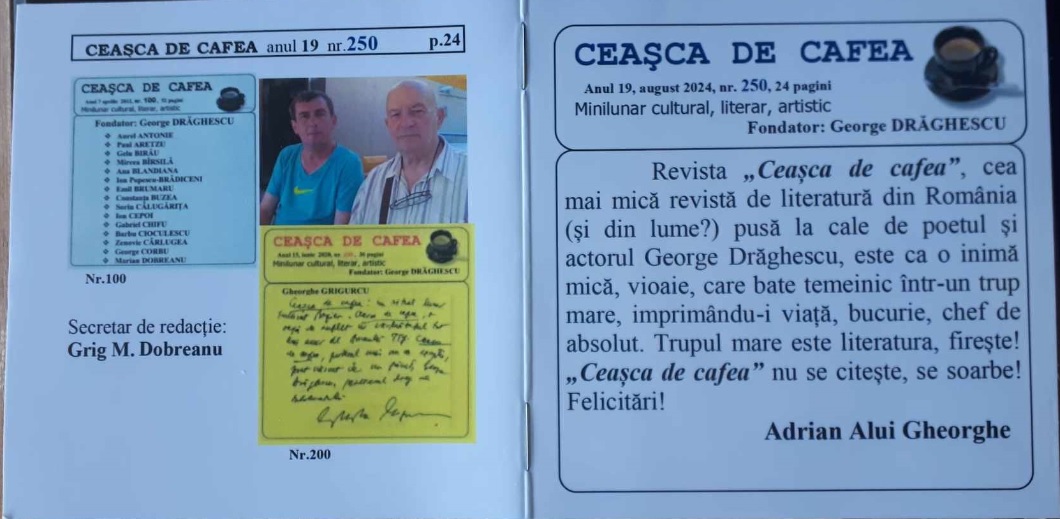 CEAŞCA DE CAFEA anul 19 nr.250 p.24
CEAŞCA DE CAFEA
Minilunar cultural, literar, artistic
Fondator: George DRĂGHESCU
Aurel ANTONIE
Paul ARETZU
Gela BIRĂU
Mircea BÎRSILĂ
Ana BLANDIANA
Ion Popescu-BRĂDICENI
Emil BRUMARU
Constanţa BUZEA
Sorin CĂLUGĂRIŢA
Ion CEPOI
Gabriel CHIFU
Barbu CIOCULESCU
Zenovie CÂRLUGEA
George CORBU
Marian DOBREANU
Nr.100
Secretar de redacţie:
Grig M. Dobreanu
CEAŞCA DE CAFEA
Minilunar cultural, literar, artistic
Fondator: George DRĂGHESCU
Gheorghe GRIGURCU
Nr.200
CEAŞCA DE CAFEA
Anul 19, august 2024, nr. 250, 24 pagini
Minilunar cultural, literar, artistic
Fondator: George DRĂGHESCU
Revista „Ceaşca de cafea”, cea
mai mică revistă de literatură din România
(şi din lume?) pusă la cale de poetul şi
actorul George Drăghescu, este ca o inimă
mică, vioaie, care bate temeinic într-un trup
mare, imprimându-i viaţă, bucurie, chef de
absolut. Trupul mare este literatura, fireşte!
„Ceaşca de cafea” nu se citeşte, se soarbe!
Felicitări!
Adrian Alui Gheorghe